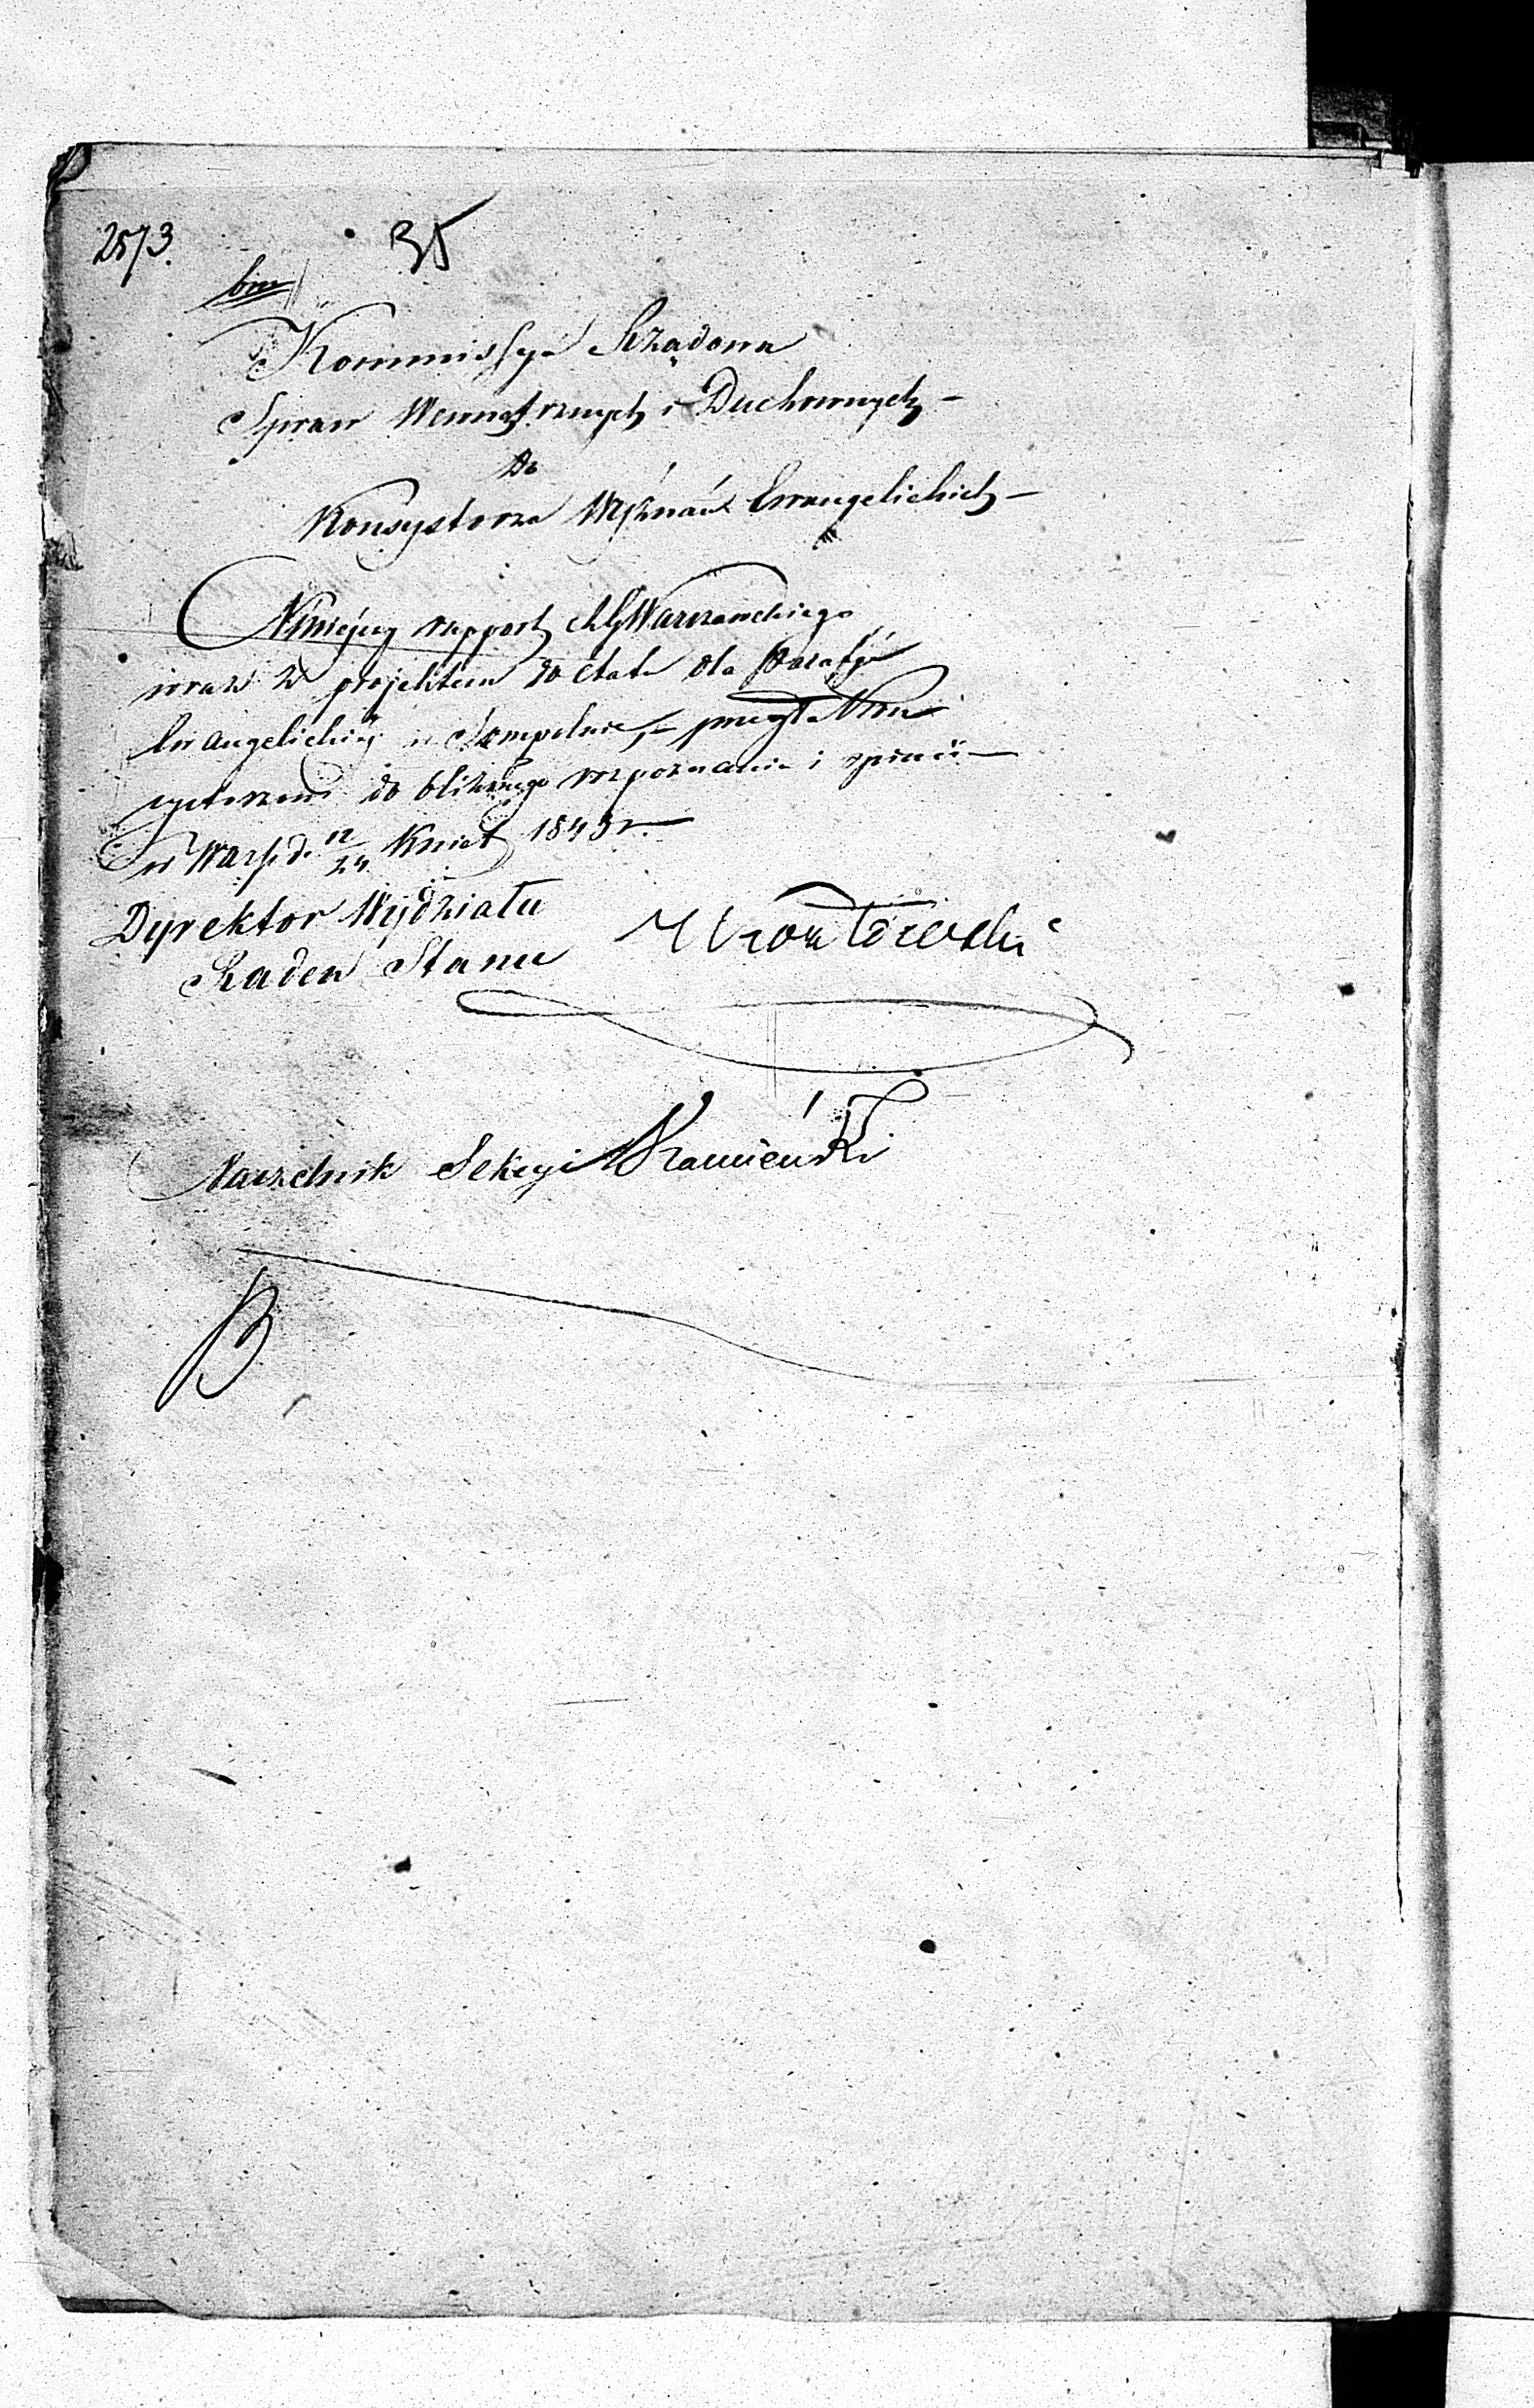 2873.
35
Kommissya Rządowa
Spraw Wewnętrznych i Duchownych –
do
Konsystorza Wyznań Ewangelickich –
Niniejszy rapport RGWarszawskiego
wraz z projektem do etatu dla Parafji
Ewangelickiej w Sompolnie, – przesyła Kon
systorzowi do bliższego rozpoznania i opinii –
w Warsz. d. 12/24 Kwiet 1843 r. –
Dyrektor Wydziału
Radca Stanu
Naczelnik Sekcyi Kamieński